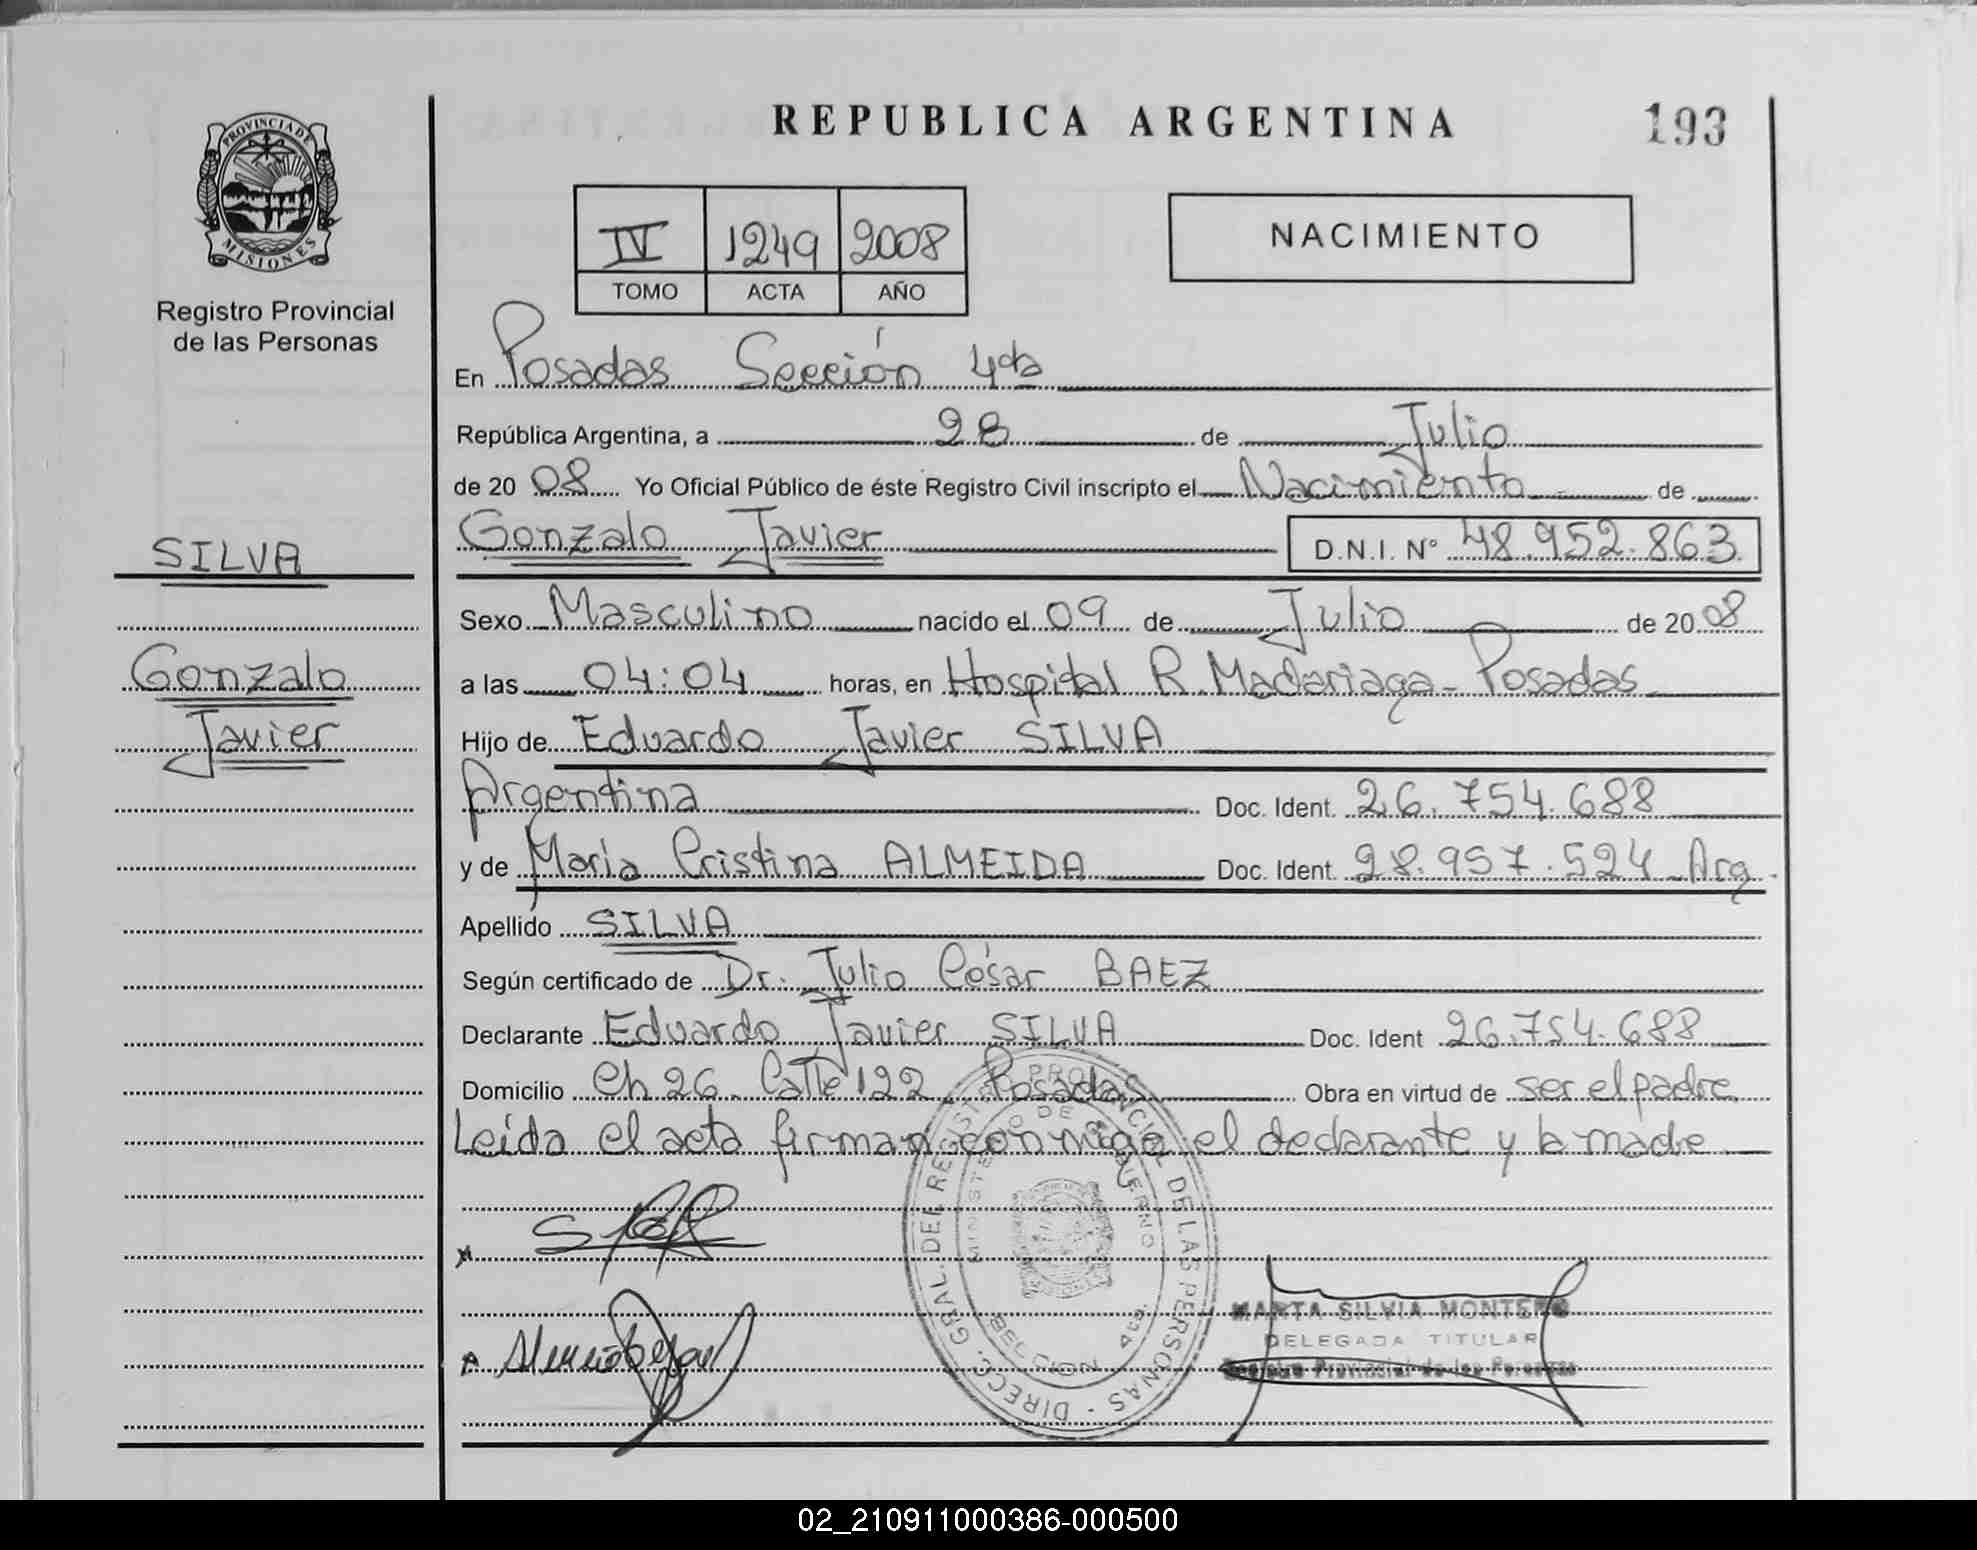 REPUBLICA ARGENTINA
193
PROVINCIA DE
MISIONES
Registro Provincial
de las Personas
IV 1249 2008
TOMO ACTA AÑO
NACIMIENTO
En Posadas Sección 4ta
República Argentina, a 28 de Julio
de 20 08 Yo Oficial Público de éste Registro Civil inscripto el Nacimiento de
SILVA
Gonzalo Javier D.N.I. N° 48.952.863
Sexo Masculino nacido el 09 de Julio de 20 08
Gonzalo
a las 04:04 horas, en Hospital R. Madariaga - Posadas
Javier
Hijo de Eduardo Javier SILVA
Argentina Doc. Ident. 26.754.688
y de María Cristina ALMEIDA Doc. Ident. 28.957.524 Arg.
Apellido SILVA
Según certificado de Dr. Julio César BAEZ
Declarante Eduardo Javier SILVA Doc. Ident 26.754.688
Domicilio Ch 26. Calle 122 Posadas Obra en virtud de ser el padre
Leída el acta firman conmigo el declarante y la madre
DIRECC. GRAL. DEL REGISTRO PROVINCIAL DE LAS PERSONAS
MINISTERIO DE GOBIERNO
MARTA SILVIA MONTERO
DELEGADA TITULAR
Registro Provincial de las Personas
02_210911000386-000500